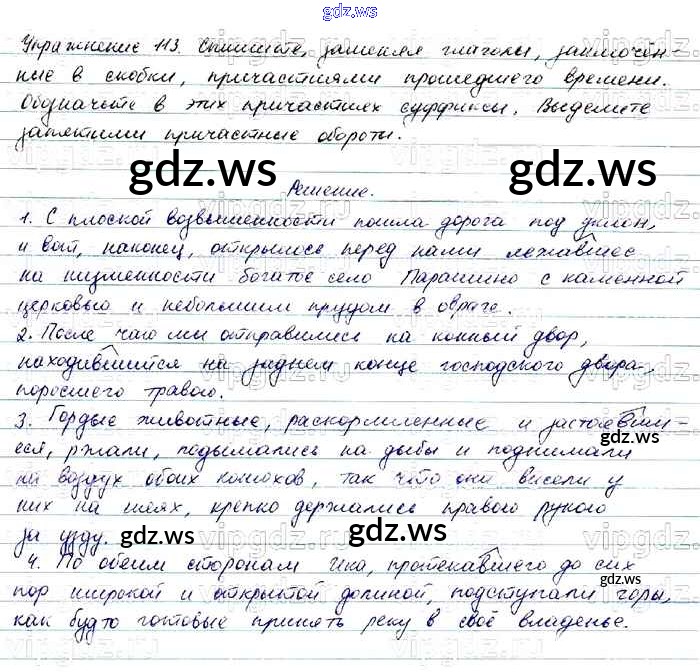 gdz.ws
Упражнение 113. Спишите, заменяя глаголы, заключён-
ные в скобки, причастиями прошедшего времени.
Обозначьте в этих причастиях суффиксы. Выделите
запятыми причастные обороты.
gdz.ws gdz.ws
Решение.
1. С плоской возвышенности пошла дорога под уклон,
и вот, наконец, открылось перед нами лежавшее
на низменности богатое село Парашино с каменной
церковью и небольшим прудом в овраге.
2. После чаю мы отправились на конный двор,
находившийся на заднем конце господского двора,
поросшего травою.
gdz.ws gdz.ws
3. Гордые животные, раскормленные и застоявши-
еся, ржали, подымались на дыбы и поднимали
на воздух обоих конюхов, так что они висели у
них на шеях, крепко держались правою рукою
за узду.
gdz.ws gdz.ws
4. По обеим сторонам Ика, протекавшего до сих
пор широкой и открытой долиной, подступали горы,
как будто готовые принять реку в своё владенье.
gdz.ws gdz.ws
vipgdz.ru